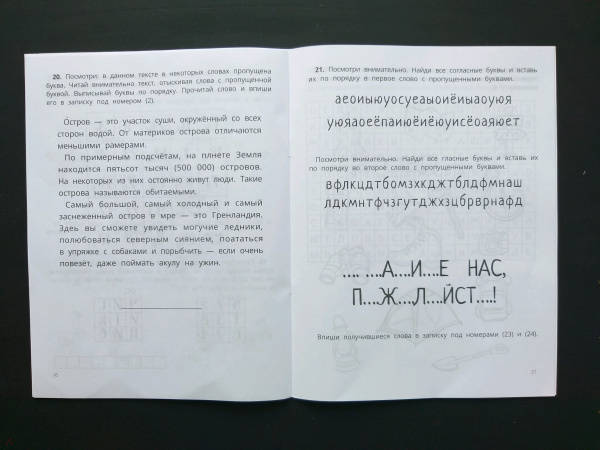 20. Посмотри: в данном тексте в некоторых словах пропущена
буква. Читай внимательно текст, отыскивая слова с пропущенной
буквой. Выписывай буквы по порядку. Прочитай слово и впиши
его в записку под номером (2).
Остров — это участок суши, окружённый со всех
сторон водой. От материков острова отличаются
меньшими рамерами.
По примерным подсчётам, на плнете Земля
находится пятьсот тысяч (500 000) островов.
На некоторых из них остоянно живут люди. Такие
острова называются обитаемыми.
Самый большой, самый холодный и самый
заснеженный остров в мре — это Гренландия.
Здеь вы сможете увидеть могучие ледники,
полюбоваться северным сиянием, поататься
в упряжке с собаками и порыбчить — если очень
повезёт, даже поймать акулу на ужин.
21. Посмотри внимательно. Найди все согласные буквы и вставь
их по порядку в первое слово с пропущенными буквами.
аеоиыюуосуеаыоиёиыаоуюя
уюяаоеёпаиюёиёюуисёоаяюет
Посмотри внимательно. Найди все гласные буквы и вставь их
по порядку во второе слово с пропущенными буквами.
вфлкцдтбомзхкджтблдфмнаш
лдкмнтфчзгутджхзцбрврнафд
.... ....А....И....Е НАС,
П....Ж....Л....ЙСТ....!
Впиши получившиеся слова в записку под номерами (23) и (24).